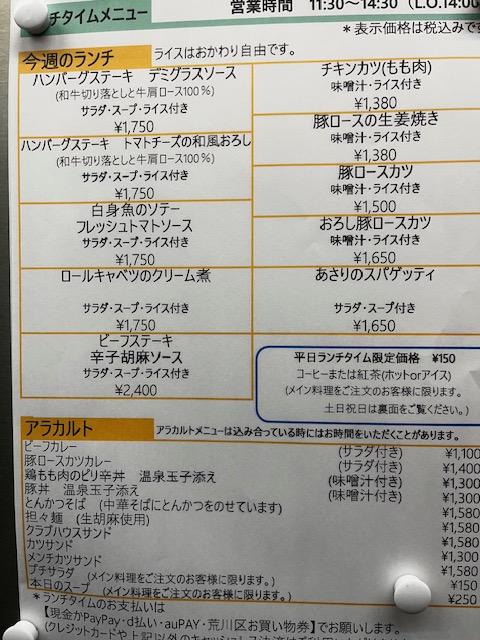 チタイムメニュー
営業時間 11:30～14:30（L.O.14:00
＊表示価格は税込みです
今週のランチ
ライスはおかわり自由です。
ハンバーグステーキ デミグラスソース
(和牛切り落としと牛肩ロース100％)
サラダ・スープ・ライス付き
¥1,750
ハンバーグステーキ トマトチーズの和風おろし
(和牛切り落としと牛肩ロース100％)
サラダ・スープ・ライス付き
¥1,750
白身魚のソテー
フレッシュトマトソース
サラダ・スープ・ライス付き
¥1,750
ロールキャベツのクリーム煮
サラダ・スープ・ライス付き
¥1,750
ビーフステーキ
辛子胡麻ソース
サラダ・スープ・ライス付き
¥2,400
チキンカツ(もも肉)
味噌汁・ライス付き
¥1,380
豚ロースの生姜焼き
味噌汁・ライス付き
¥1,380
豚ロースカツ
味噌汁・ライス付き
¥1,500
おろし豚ロースカツ
味噌汁・ライス付き
¥1,650
あさりのスパゲッティ
サラダ・スープ付き
¥1,650
平日ランチタイム限定価格 ¥150
コーヒーまたは紅茶(ホットorアイス)
(メイン料理をご注文のお客様に限ります。
土日祝日は裏面をご覧ください。)
アラカルト
アラカルトメニューは込み合っている時にはお時間をいただくことがあります。
ビーフカレー (サラダ付き) ¥1,100
豚ロースカツカレー (サラダ付き) ¥1,400
鶏もも肉のピリ辛丼 温泉玉子添え (味噌汁付き) ¥1,300
豚丼 温泉玉子添え (味噌汁付き) ¥1,300
とんかつそば (中華そばにとんかつをのせています) ¥1,580
担々麺 (生胡麻使用) ¥1,580
クラブハウスサンド ¥1,580
カツサンド ¥1,300
メンチカツサンド ¥1,580
プチサラダ (メイン料理をご注文のお客様に限ります。) ¥150
本日のスープ (メイン料理をご注文のお客様に限ります。) ¥250
＊ランチタイムのお支払いは
【現金かPayPay・d払い・auPAY・荒川区お買い物券】でお願いします。